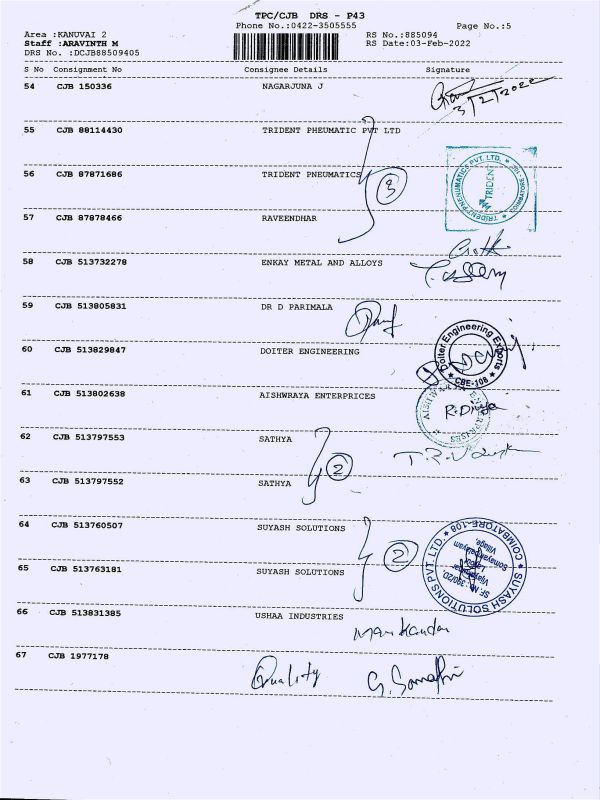 TPC/CJB DRS - P43
Phone No.:0422-3505555
Page No.:5
Area :KANUVAI 2
RS No.:885094
Staff :ARAVINTH M
RS Date:03-Feb-2022
DRS No. :DCJB88509405
S No Consignment No Consignee Details Signature
54 CJB 150336 NAGARJUNA J
3/2/2022
55 CJB 88114430 TRIDENT PHEUMATIC PVT LTD
56 CJB 87871686 TRIDENT PNEUMATICS
3
TRIDENT PNEUMATICS PVT. LTD.
COIMBATORE
TRIDENT
57 CJB 87878466 RAVEENDHAR
58 CJB 513732278 ENKAY METAL AND ALLOYS
59 CJB 513805831 DR D PARIMALA
60 CJB 513829847 DOITER ENGINEERING
Doiter Engineering Exports
CBE-108
61 CJB 513802638 AISHWRAYA ENTERPRICES
R. Divya
62 CJB 513797553 SATHYA
2
63 CJB 513797552 SATHYA
64 CJB 513760507 SUYASH SOLUTIONS
2
SUYASH SOLUTIONS PVT. LTD.
COIMBATORE-108
Village,
65 CJB 513763181 SUYASH SOLUTIONS
66 CJB 513831385 USHAA INDUSTRIES
67 CJB 1977178
Quality